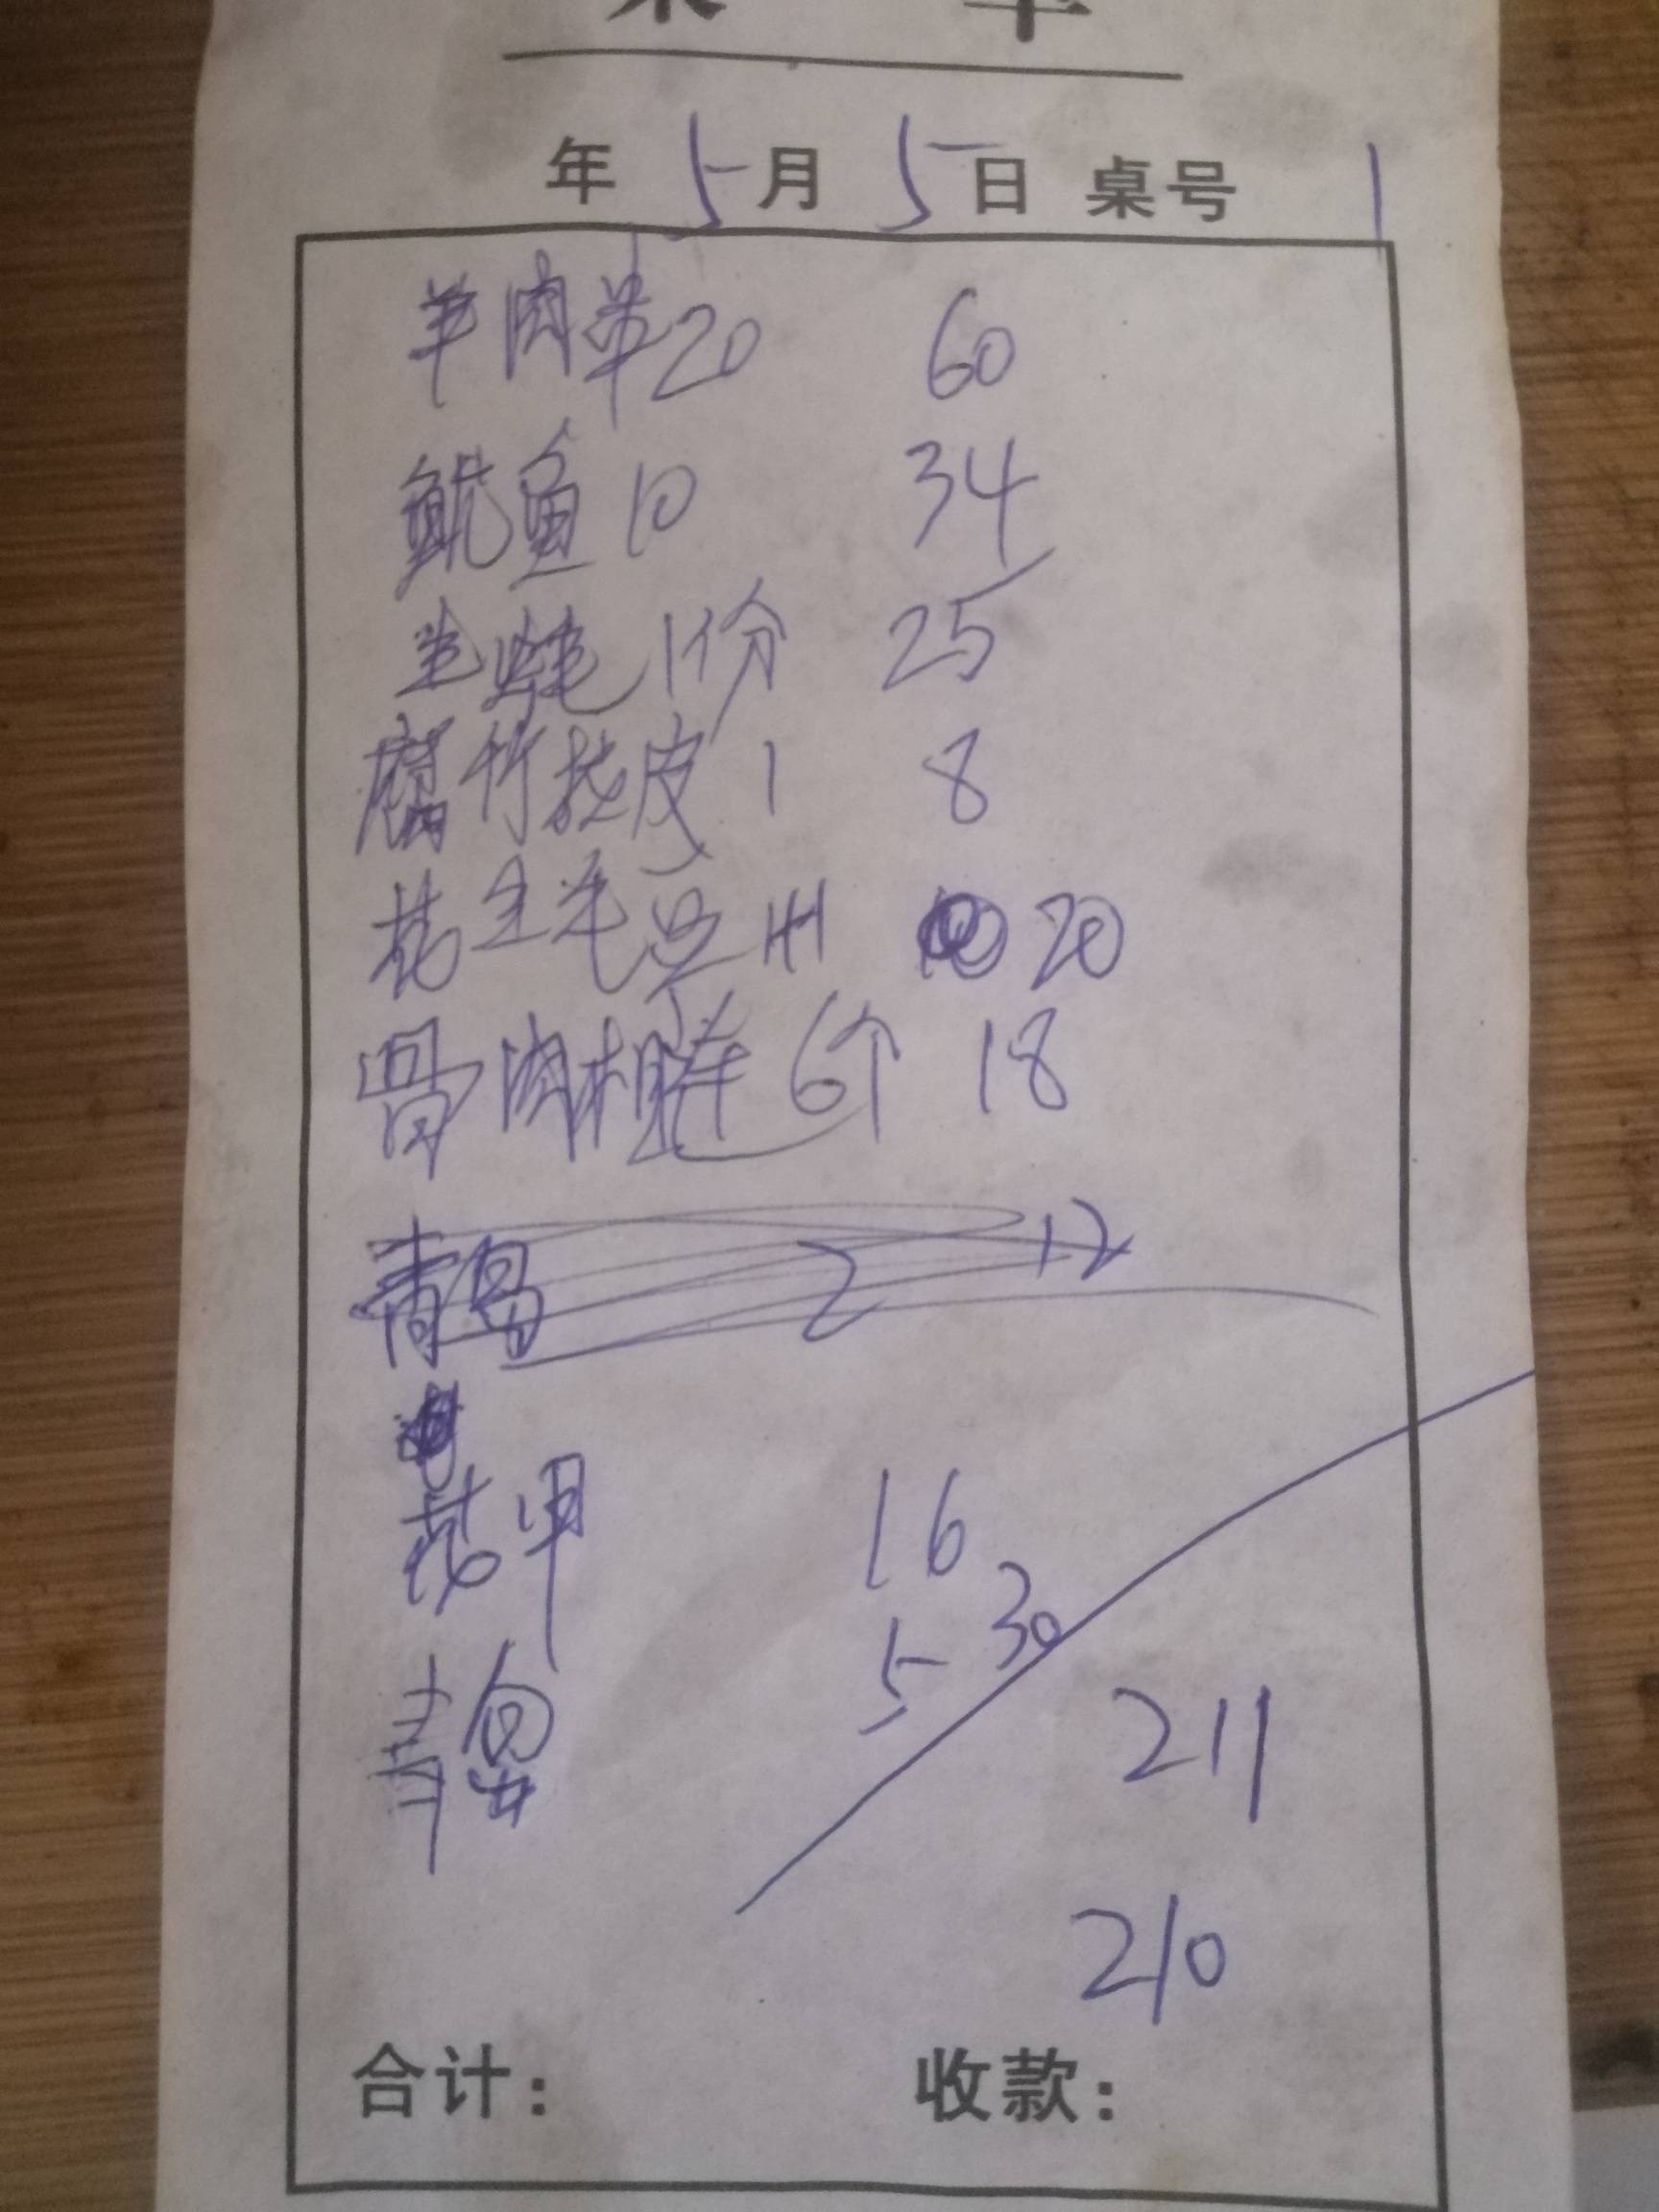 菜 单
年 5月 5日 桌号 1
羊肉串20 60
鱿鱼10 34
生蚝1份 25
腐竹拉皮 1 8
花生毛豆 1+1 20
骨肉相连 6个 18
青岛 2 12
花甲 16
青岛 5 30
211
210
合计: 收款: